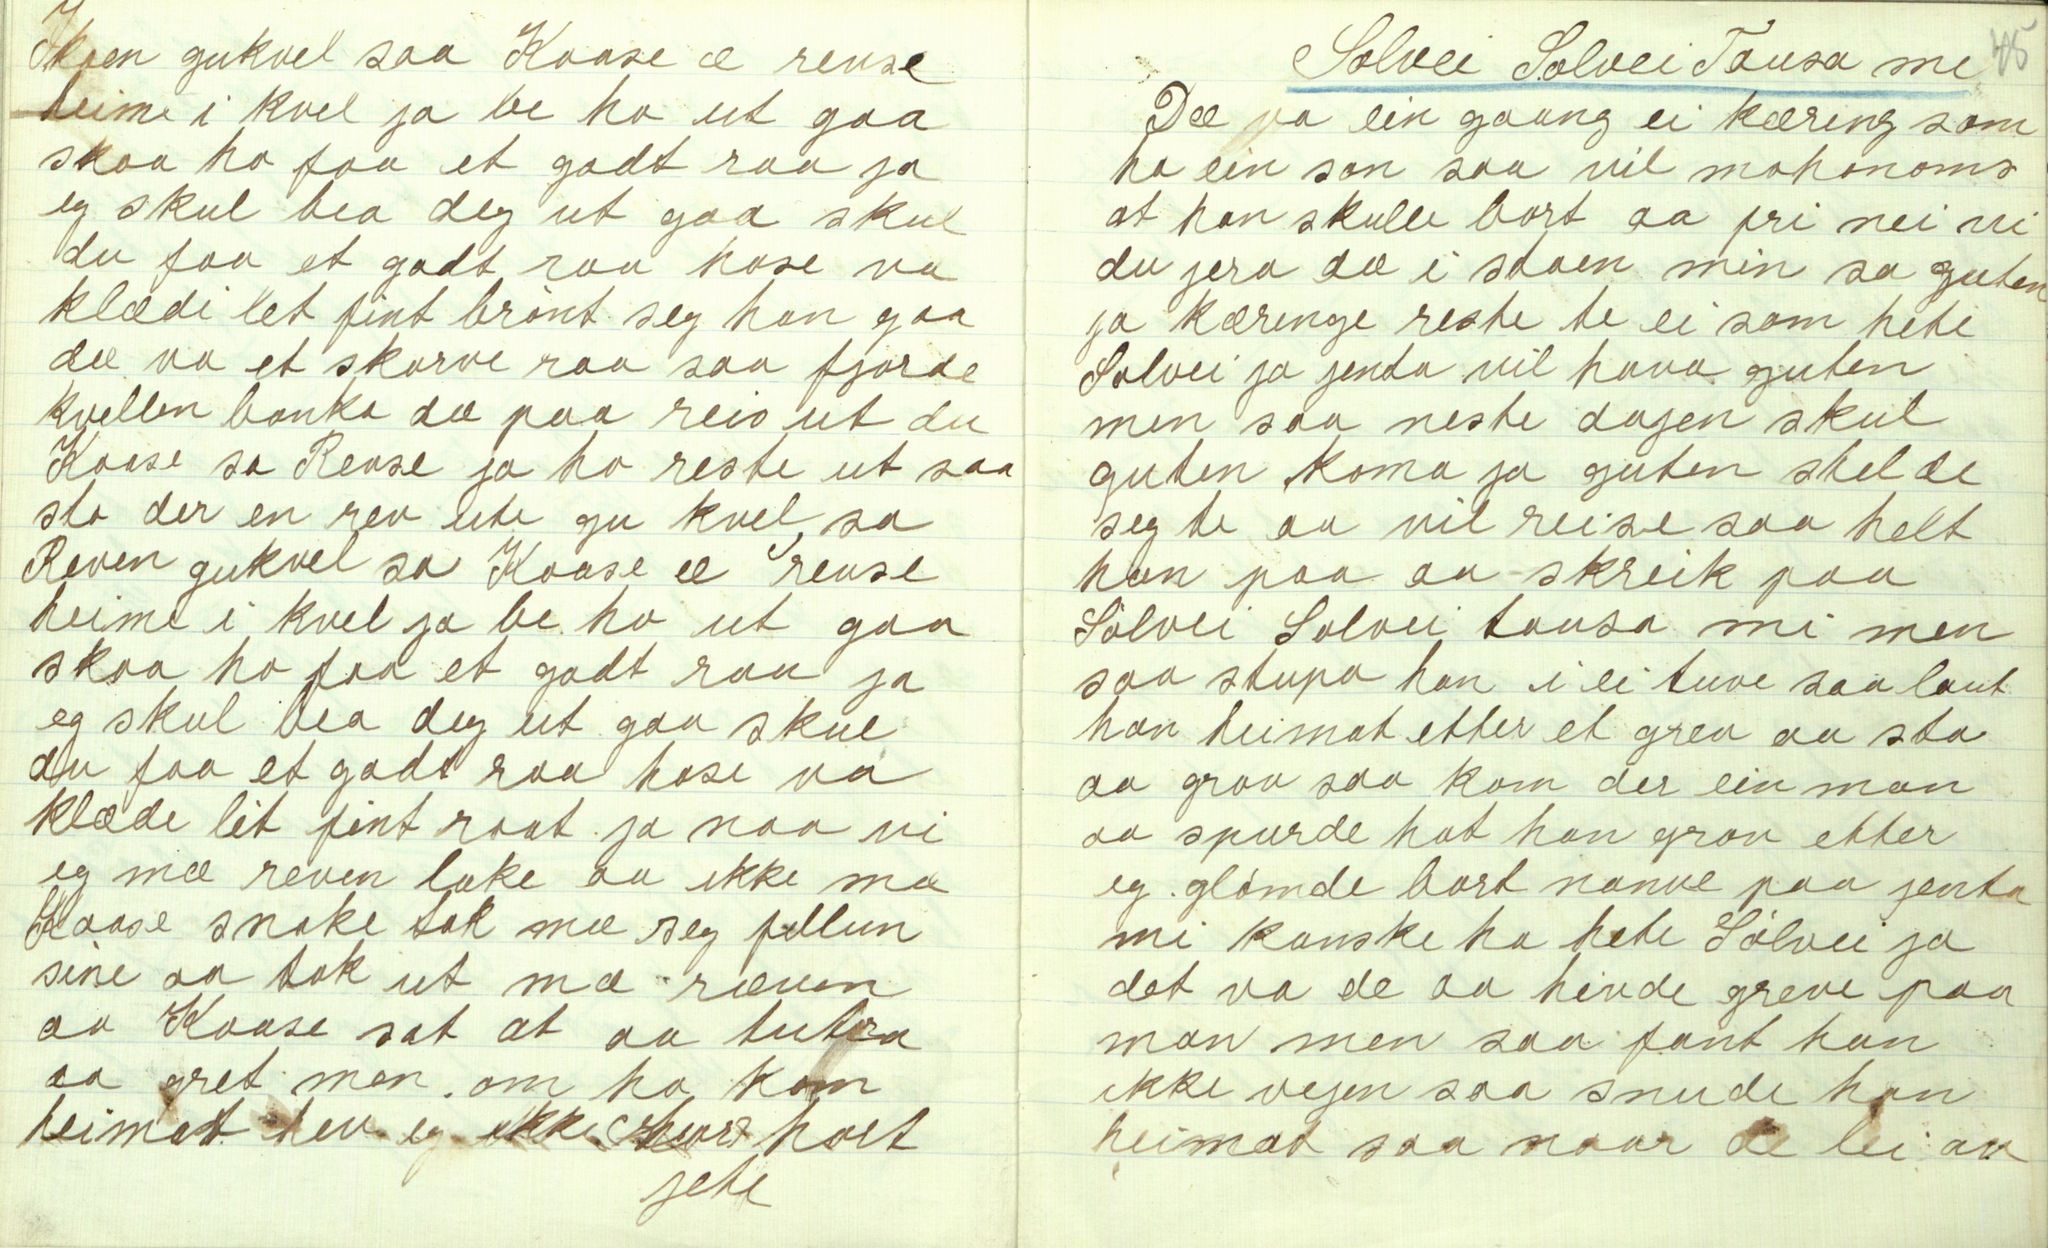 Skoen gukvel saa Kaase æ reuse
heime i kvel ja be ho ut gaa
skaa ho faa et godt raa ja
eg skul bea deg ut gaa skul
du faa et godt raa hose va
klædi let fint brönt seg han gaa
dæ va et skarve raa saa fjorde
kvellen banka dæ paa reis ut du
Kaase sa Reuse ja ho reste ut saa
sto der en rev ute gu kvel sa
Reven gukvel sa Kaase æ reuse
heime i kvel ja be ho ut gaa
skaa ho faa et godt raa ja
eg skul bea deg ut gaa skul
du faa et godt raa hose va
klæde lit fint raat ja naa vi
eg mæ reven lake aa ikke mæ
Kaase snake tok mæ seg fillun
sine aa tok ut mæ ræven
aa Kaase sat at aa tutra
aa gret men om ho kom
heimat hev eg ikke hort
jete
45
Solvei Solvei Tausa mi
Dæ va ein gaang ei kæring som
ha ein son saa vil mohonoms
at han skulle bort aa fri nei vi
du jera dæ i staen min sa guten
ja kæringe reste te ei som hete
Solvei ja jenta vil hava guten
men saa neste dagen skul
guten koma ja guten stelde
seg te aa vil reise saa helt
han paa aa skreik paa
Sölvei Solvei tausa mi men
saa stupa han i ei tuve saa laut
han heimat etter et grev aa sto
aa grov saa kom der ein man
aa spurde hot han grov etter
eg glömde bort nanve paa jenta
mi kanske ho hete Sölvei ja
det va de aa hivde greve paa
man men saa fant han
ikke vejen saa snude han
heimat saa naar de lei av